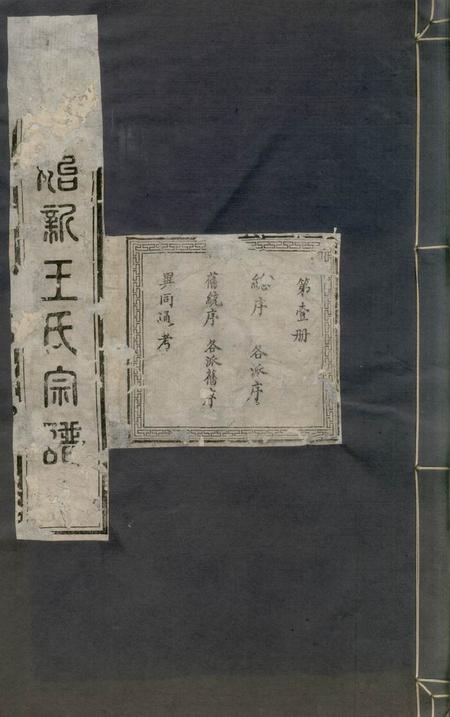 新王氏宗譜
第壹册
総序 各派序
舊統序 各派舊序
異同通考